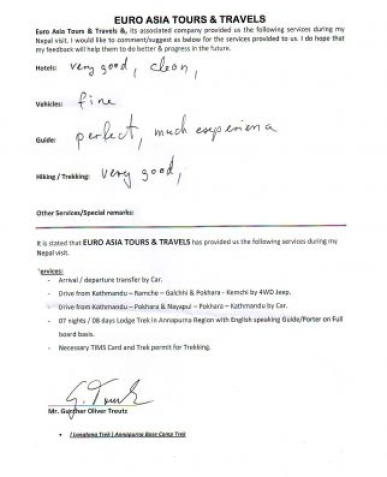 EURO ASIA TOURS & TRAVELS
Euro Asia Tours & Travels &, its associated company provided us the following services during my
Nepal visit. I would like to comment/suggest as below for the services provided to us. I do hope that
my feedback will help them to do better & progress in the future.
Hotels: very good, clean,
Vehicles: fine
Guide: perfect, much experiena
Hiking / Trekking: very good,
Other Services/Special remarks:
It is stated that EURO ASIA TOURS & TRAVELS has provided us the following services during my
Nepal visit.
Services:
- Arrival / departure transfer by Car.
- Drive from Kathmandu – Ramche – Galchhi & Pokhara - Kemchi by 4WD Jeep.
- Drive from Kathmandu – Pokhara & Nayapul – Pokhara – Kathmandu by Car.
- 07 nights / 08 days Lodge Trek in Annapurna Region with English speaking Guide/Porter on Full
board basis.
- Necessary TIMS Card and Trek permit for Trekking.
G. Treutz
Mr. Gunther Oliver Treutz
• / Langtang Trek | Annapurna Base Camp Trek